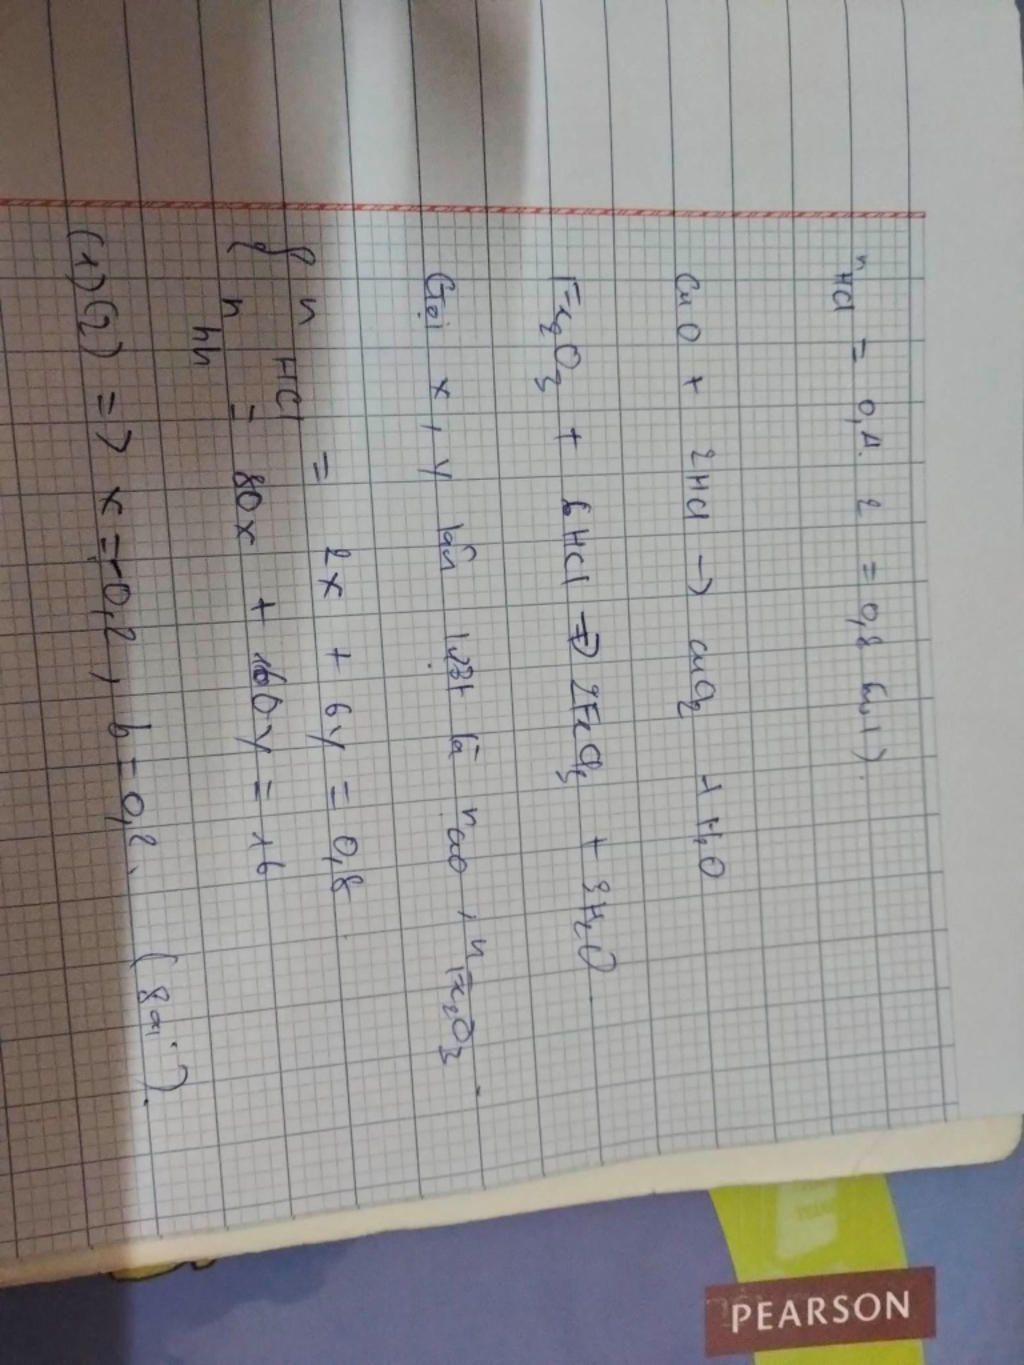 nHCl = 0,4. 2 = 0,8 (mol).
CuO + 2HCl → CuCl2 + H2O
Fe2O3 + 6HCl → 2FeCl3 + 3H2O
Gọi x, y lần lượt là nCuO, nFe2O3.
{ nHCl = 2x + 6y = 0,8.
nhh = 80x + 160y = 16
(1)(2) => x = -0,2, b = 0,2. (sai).
PEARSON